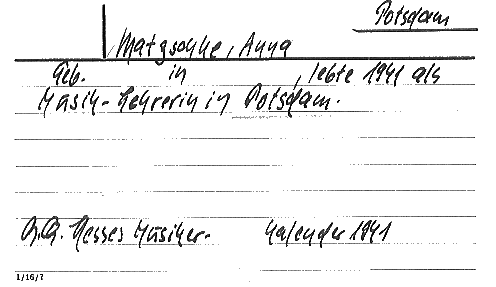 Potsdam
Matzschke, Anna
Geb. in , lebte 1941 als
Musik-Lehrerin in Potsdam.
Hesses Musiker- Kalender 1941
1/16/7